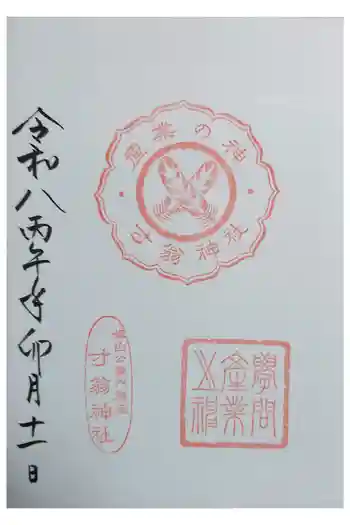 産業の神
才翁神社
學問
産業
之神
才翁神社
令和八丙午年卯月十一日